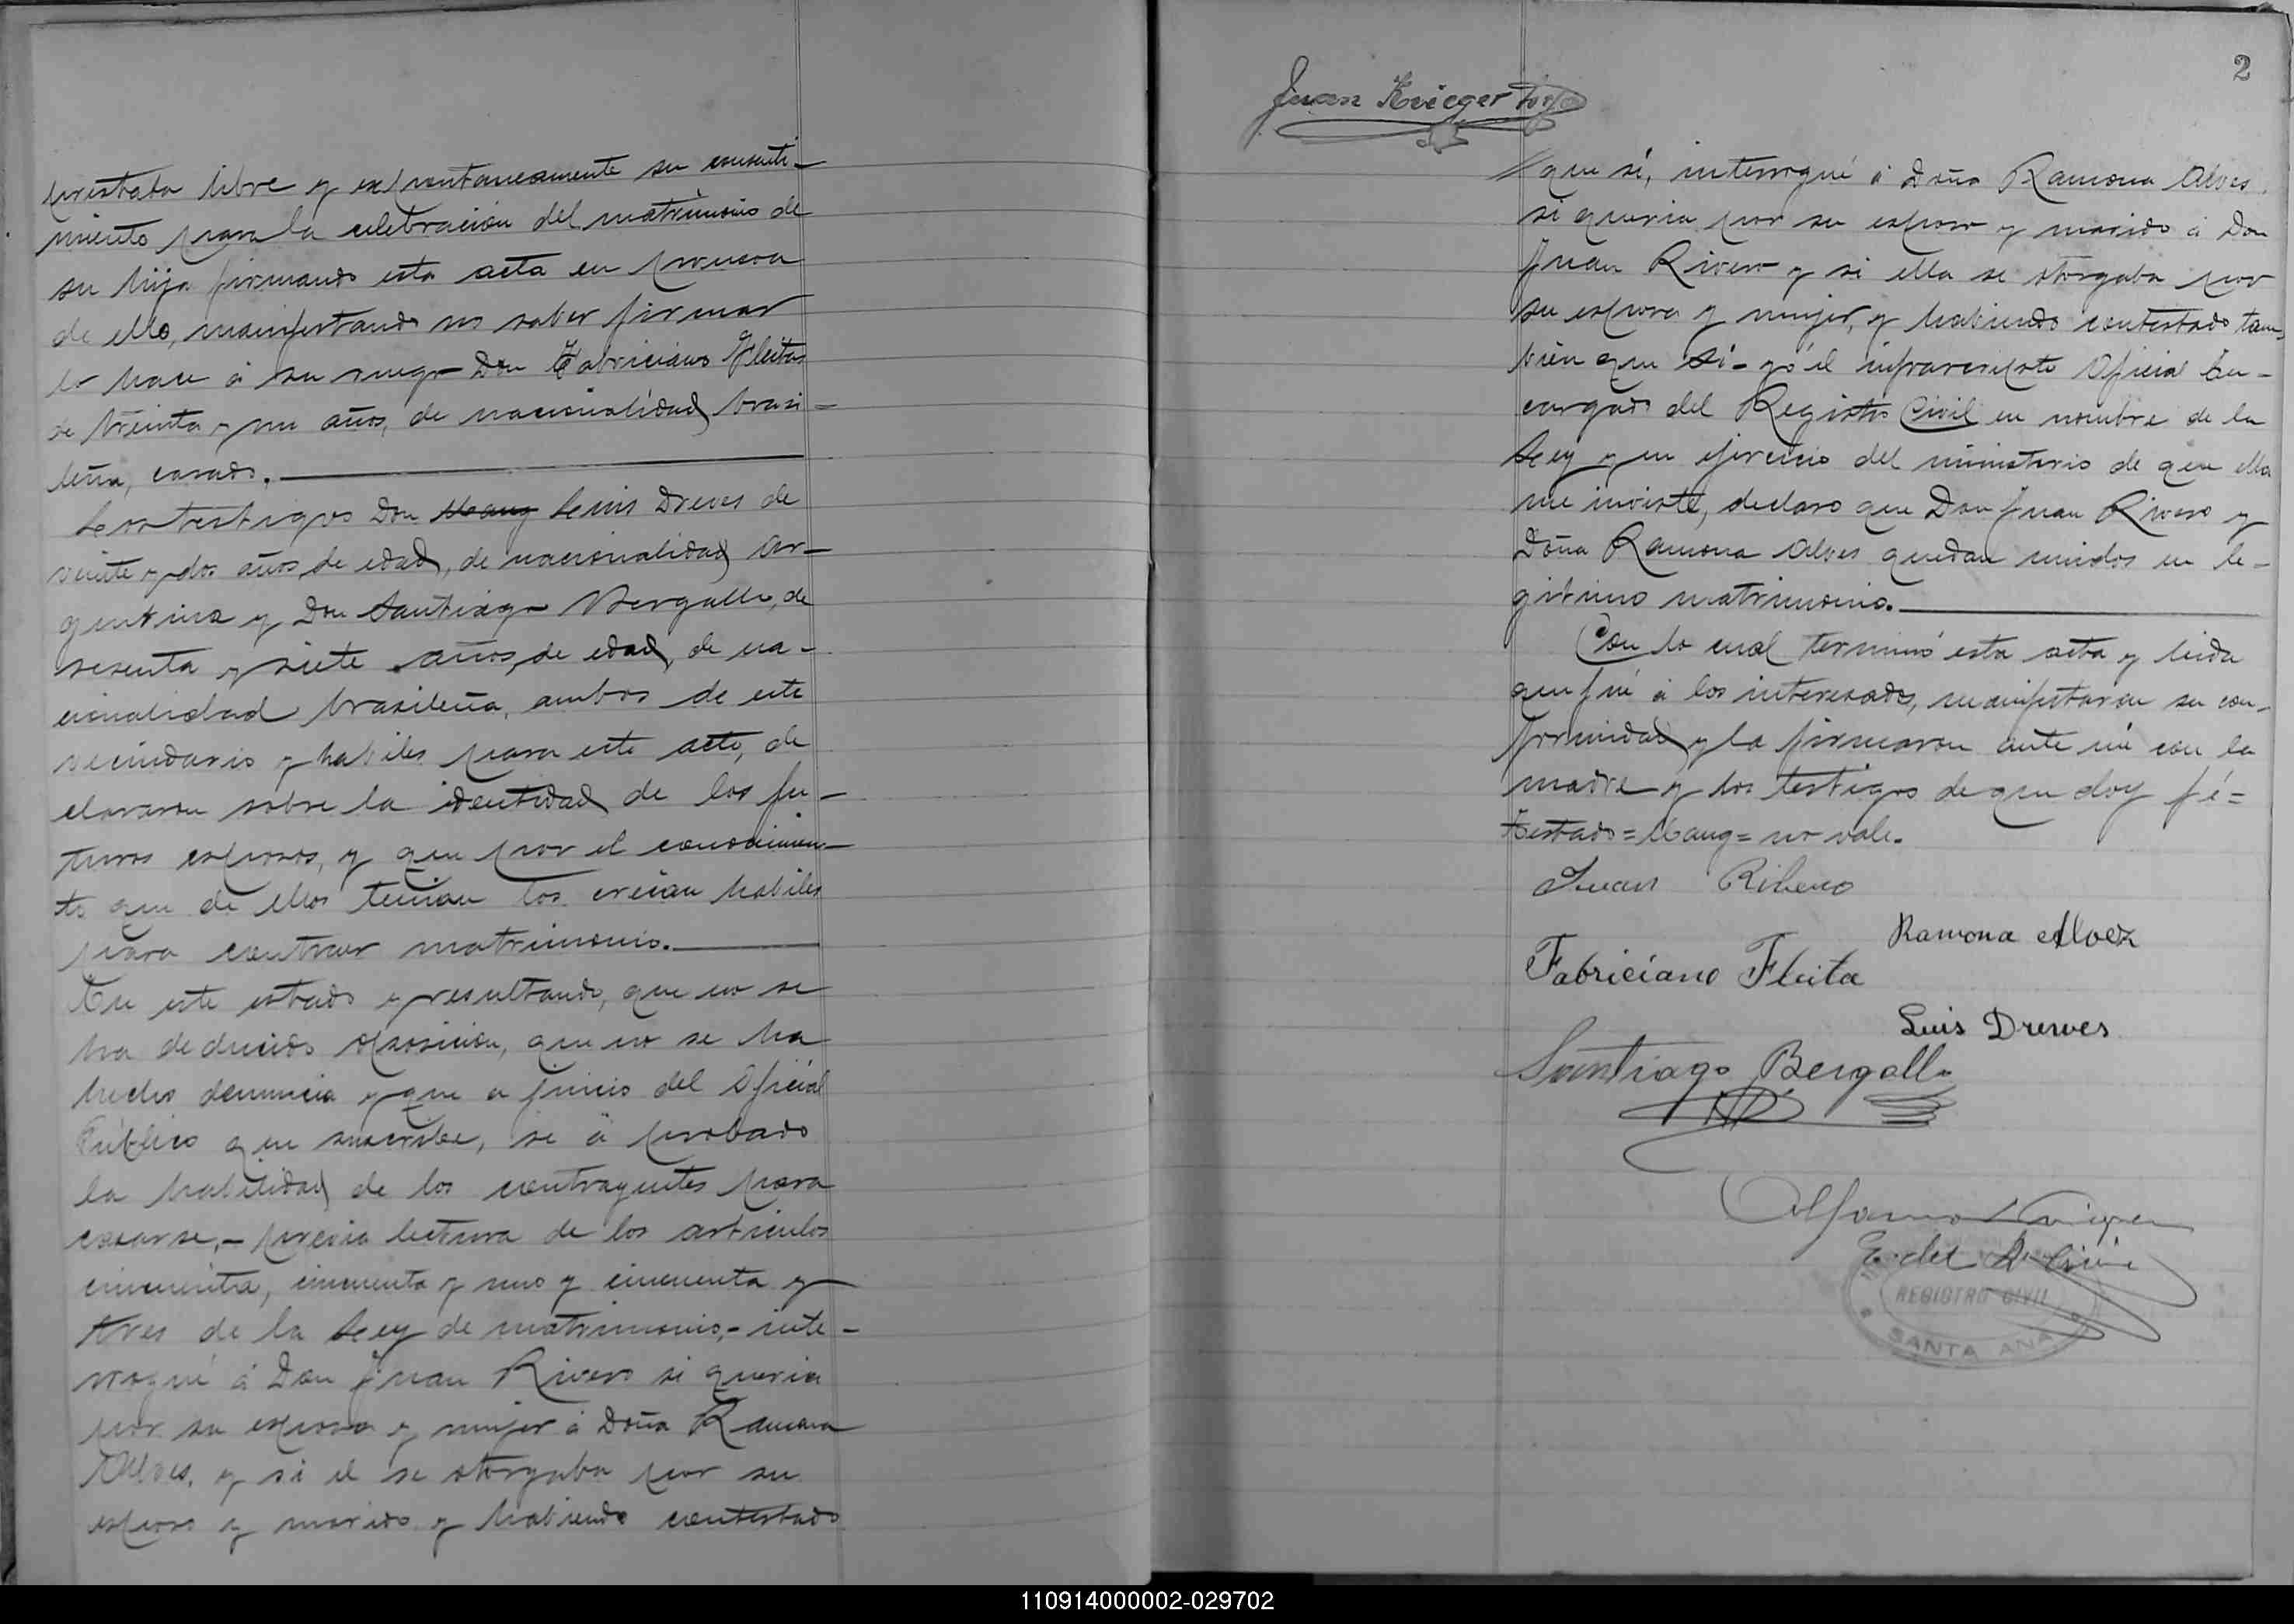 prestaba libre y espontaneamente su consenti-
miento para la celebración del matrimonio de
su hija firmando esta acta en prueva
de ello, manifestando no saber firmar
lo hace á su ruego Don Fabriciano Fleitas
de treinta y un años, de nacionalidad brasi-
leña, casado.
Los testigos Don Haug Luis Dreves de
veinte y dos años de edad, de nacionalidad Ar-
gentina y Don Santiago Bergallo, de
sesenta y siete años, de edad, de na-
cionalidad brasileña, ambos de este
vecindario y habiles para este acto, de
clararon sobre la identidad de los fu-
turos esposos, y que por el conocimien-
to que de ellos tenian los creian habiles
para contraer matrimonio.
En este estado y resultando, que no se
ha deducido oposición, que no se ha
hecho denuncia y que a juicio del Oficial
Público que suscribe, se á probado
la habilidad de los contrayentes para
casarse,- previa lectura de los articulos
cincuenta, cincuenta y uno y cincuenta y
tres de la Ley de matrimonio,- inte-
rrogué á Don Juan Rivero si queria
por su esposa y mujer á Doña Ramona
Alves, y si el se otorgaba por su
esposo y marido y habiendo contestado
2
Juan Krieger
que si, interrogué á Doña Ramona Alves,
si queria por su esposo y marido á Don
Juan Rivero y si ella se otorgaba por
su esposa y mujer, y habiendo contestado tam
bién que Si- yó él infrarescripto Oficial En-
cargado del Registro Civil en nombre de la
Ley y en ejercicio del ministerio de que ella
me inviste, declaro que Don Juan Rivero y
Doña Ramona Alves quedan unidos en le-
gitimo matrimonio.
Con lo cual terminó esta acta y leida
que fué á los interesados, manifestaron su con-
formidad y la firmaron ante mi con la
madre y los testigos de que doy fé=
Testado=Haug=no vale.
Juan Ribero
Ramona Alvez
Fabriciano Fleita
Luis Drewes
Santiago Bergallo
E. del R. Civil
REGISTRO CIVIL
SANTA ANA
110914000002-029702